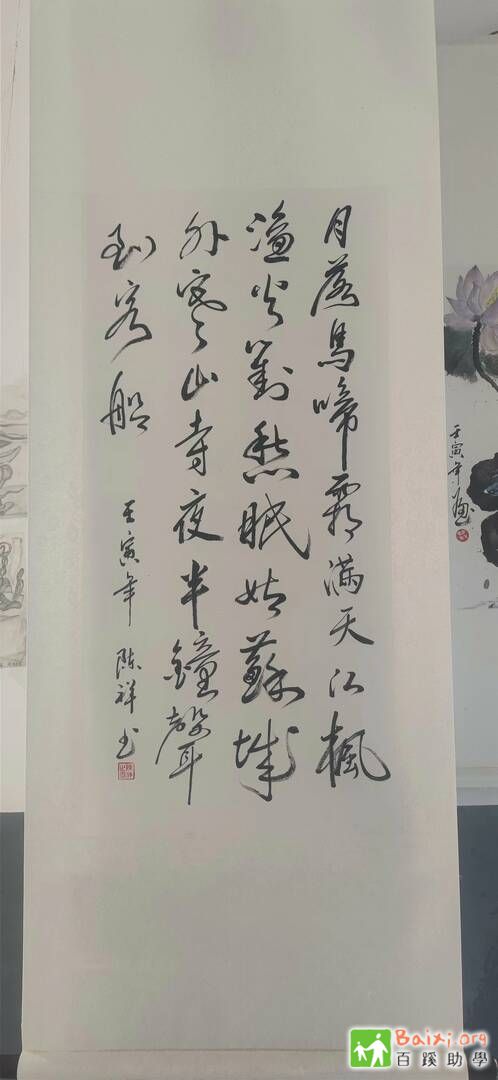 月落烏啼霜滿天江楓
漁火對愁眠姑蘇城
外寒山寺夜半鐘聲
到客船
壬寅年 陈祥书
壬寅年
Baixi.org
百蹊助學